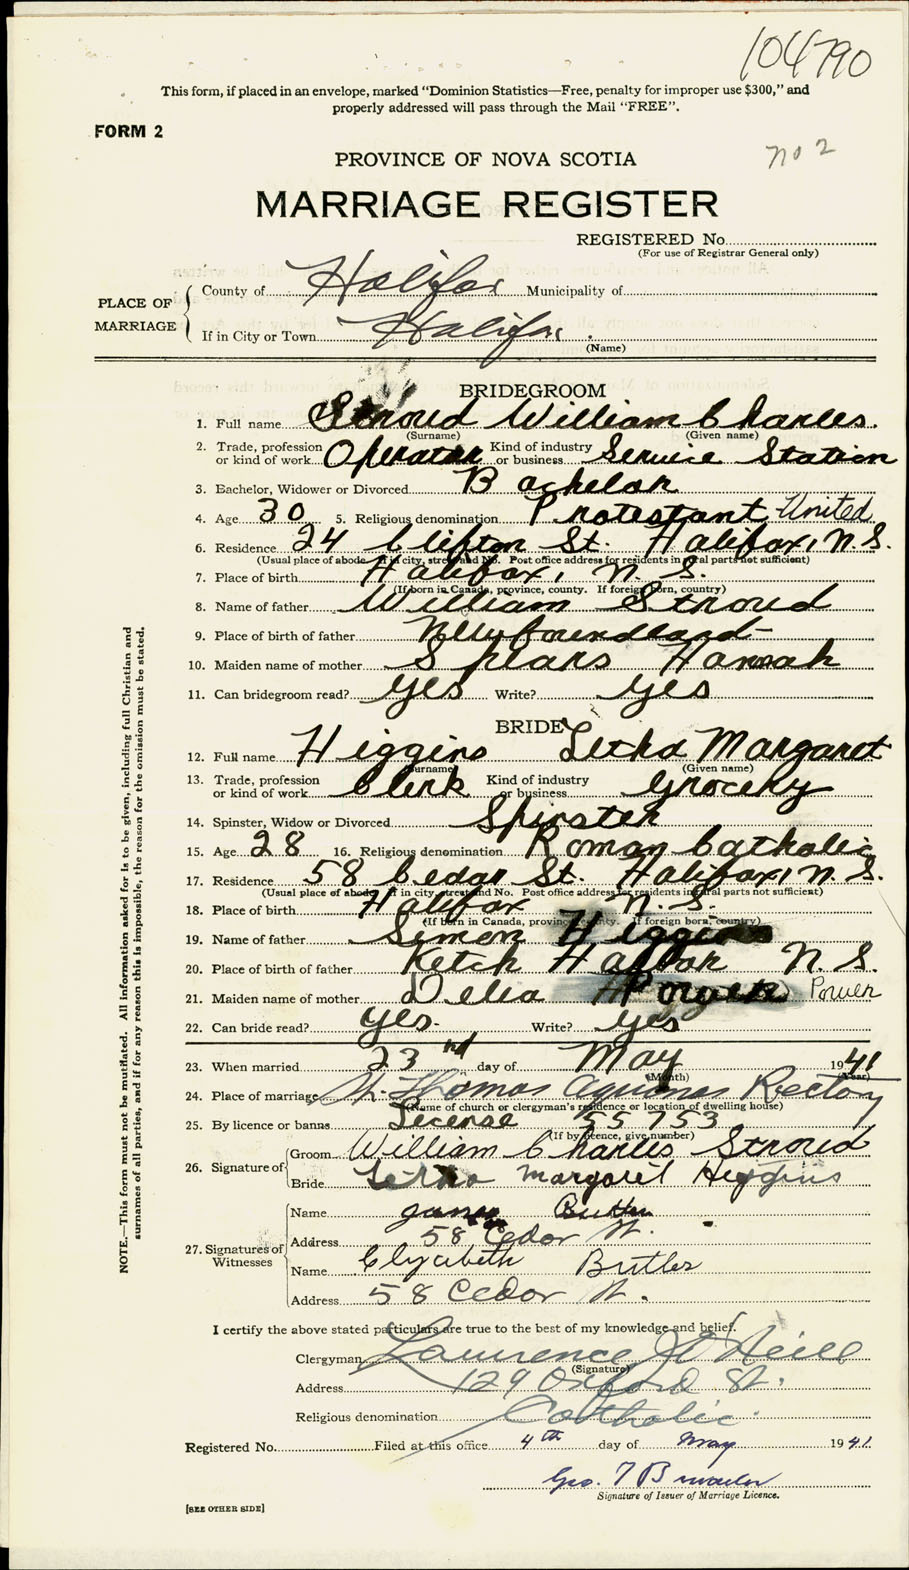 104790
This form, if placed in an envelope, marked "Dominion Statistics—Free, penalty for improper use $300," and
properly addressed will pass through the Mail "FREE".
FORM 2
No 2
PROVINCE OF NOVA SCOTIA
MARRIAGE REGISTER
REGISTERED No.
(For use of Registrar General only)
PLACE OF MARRIAGE
County of Halifax Municipality of
If in City or Town Halifax
(Name)
BRIDEGROOM
1. Full name Stroud William Charles.
(Surname) (Given name)
2. Trade, profession or kind of work Operator Kind of industry or business Service Station
3. Bachelor, Widower or Divorced Bachelor
4. Age 30 5. Religious denomination Protestant United
6. Residence 24 Clifton St. Halifax, N.S.
(Usual place of abode. If in city, street and No. Post office address for residents in rural parts not sufficient)
7. Place of birth Halifax, N. S.
(If born in Canada, province, county. If foreign born, country)
8. Name of father William Stroud
9. Place of birth of father Newfoundland
10. Maiden name of mother Spears Hannah
11. Can bridegroom read? yes Write? yes
BRIDE
12. Full name Higgins Letha Margaret
(Surname) (Given name)
13. Trade, profession or kind of work Clerk Kind of industry or business Grocery
14. Spinster, Widow or Divorced Spinster
15. Age 28 16. Religious denomination Roman Catholic
17. Residence 58 Cedar St. Halifax, N.S.
(Usual place of abode. If in city street and No. Post office address for residents in rural parts not sufficient)
18. Place of birth Halifax N. S.
(If born in Canada, province, county. If foreign born, country)
19. Name of father Simon Higgins
20. Place of birth of father Ketch Harbor N. S.
21. Maiden name of mother Delia Power Power
22. Can bride read? yes. Write? yes
23. When married 23rd day of May 1941
(Month) (Year)
24. Place of marriage St. Thomas Aquinas Rectory
(Name of church or clergyman's residence or location of dwelling house)
25. By licence or banns License 55753
(If by licence, give number)
26. Signature of
Groom William Charles Stroud
Bride Letha Margaret Higgins
27. Signatures of Witnesses
Name James Butler
Address 58 Cedar St.
Name Elizabeth Butler
Address 58 Cedar St.
I certify the above stated particulars are true to the best of my knowledge and belief.
Clergyman Lawrence
(Signature)
Address 129 Oxford St.
Religious denomination Catholic.
Registered No. Filed at this office 4th day of May 1941
Geo.
Signature of Issuer of Marriage Licence.
[SEE OTHER SIDE]
NOTE.—This form must not be mutilated. All information asked for is to be given, including full Christian and
surnames of all parties, and if for any reason this is impossible, the reason for the omission must be stated.